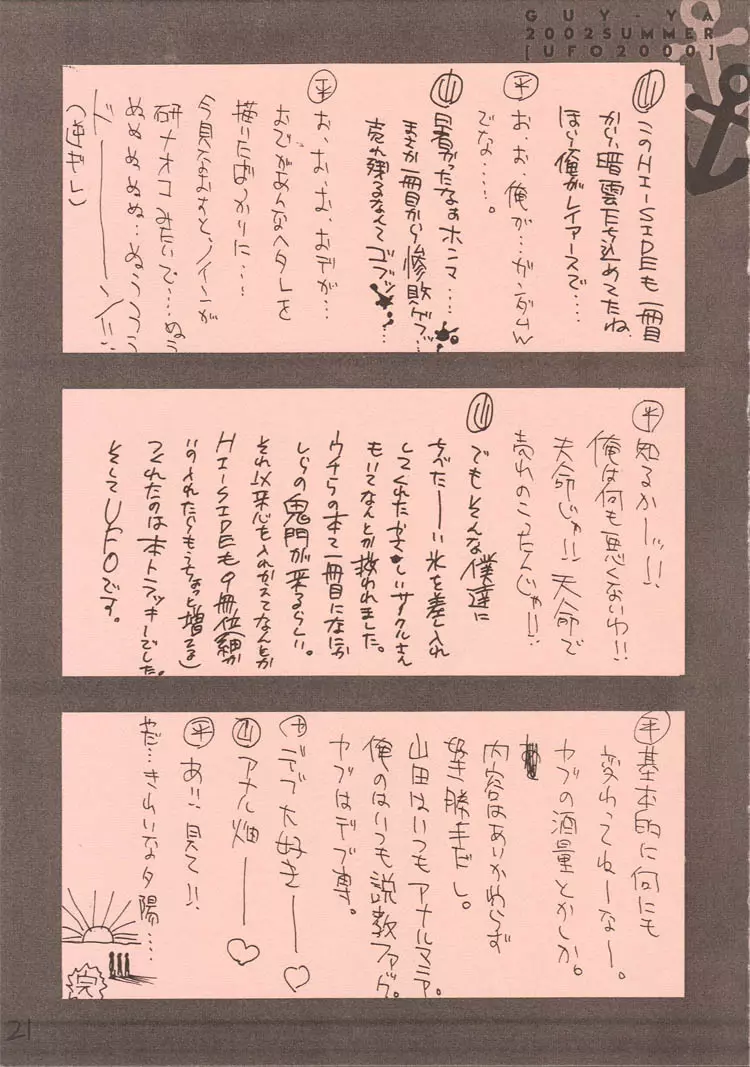 GUY-YA
2002SUMMER
[UFO2000]
山 このHI-SIDEも一冊目
から暗雲たち込めてたね
ほら俺がレイアースで....
平 お、お、俺が…ガンダムW
でな......。
山 暑かったなぁホンマ....
まさか一冊目から惨敗ゲフ...
売れ残るなんてゴブッ...
平 お、お、お、おデが...
おでがあんなヘタレを
描いたばっかりに...
今見なおすと、ノインが
研ナオコみたいで....ぬう
平 知るかーッ!!
俺は何も悪くないわ!!
天命じゃ!! 天命で
売れのこったんじゃ!!
山 でもそんな僕達に
ちべたーーい氷を差し入れ
してくれたやさしいサークルさん
もいてなんとか救われました。
ウチらの本て一冊目になにか
しらの鬼門が来るらしい。
それ以来心を入れかえてなんとか
HI-SIDEも9冊位(細か
いの入れたらもうちょっと増えてる)
つくれたのは本トラッキーでした。
そしてUFOです。
平 基本的に何にも
変わってねーなー。
ヤブの酒量とかしか。
内容はあいかわらず
好き勝手だし。
山田はいつもアナルマニア。
俺のはいつも説教ファック。
ヤブはデブ専。
ヤ デブ大好きー♡
山 アナル畑ー♡
平 あ!! 見て!!
やだ…きれいな夕陽....
完
21